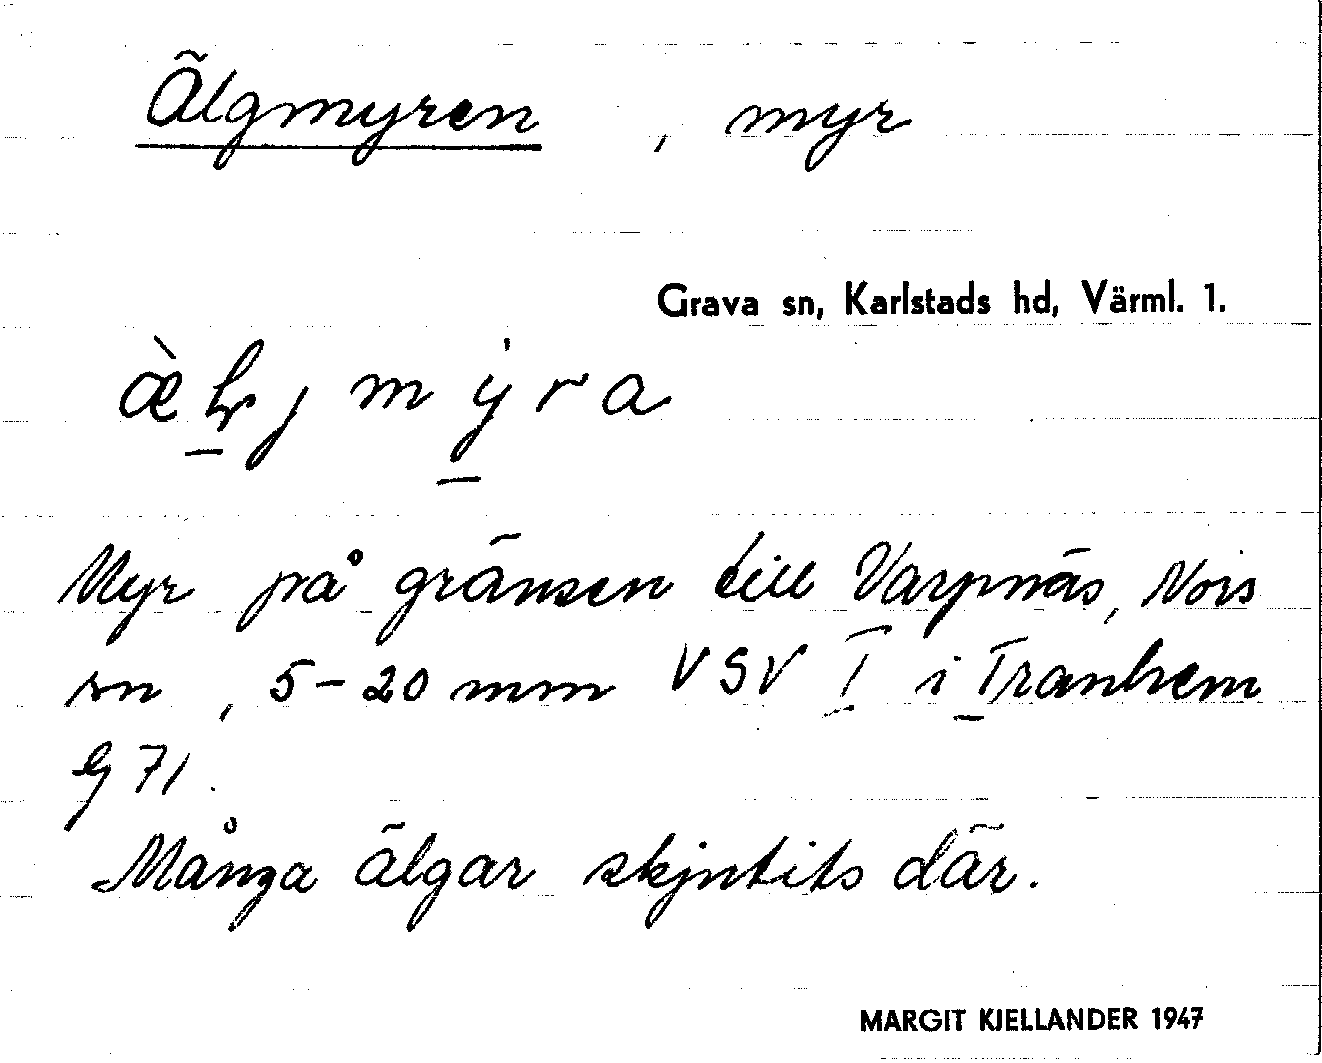 Älgmyren , myr
Grava sn, Karlstads hd, Värml. 1.
myra
Myr på gränsen till Varpnäs, Nors
sn, 5-20 mm VSV I i Tranhem
G 71.
Många älgar skjutits där.
MARGIT KJELLANDER 1947